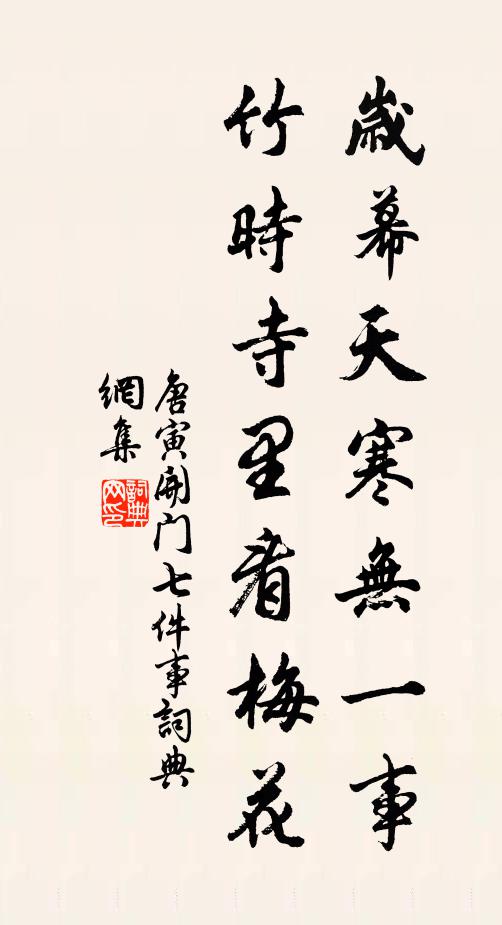 歲幕天寒無一事
竹時寺里看梅花
唐寅開門七件事詞典
網集
詞典網印